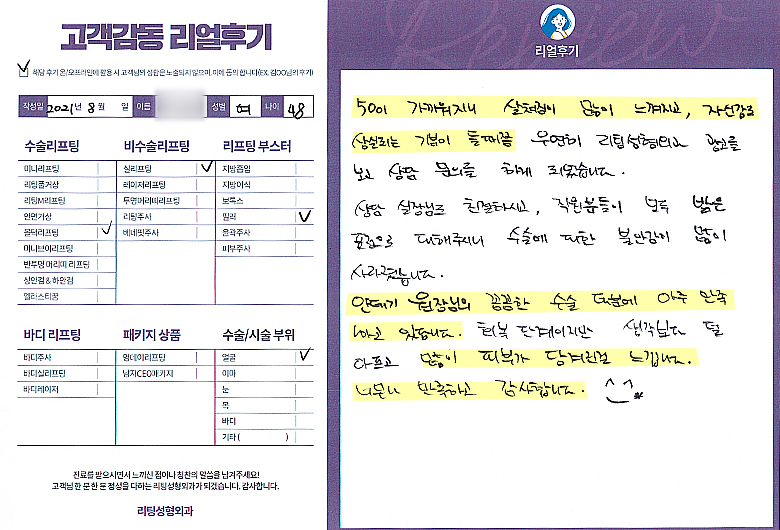 고객감동 리얼후기
해당 후기 온/오프라인에 활용 시 고객님의 성함은 노출되지 않으며, 이에 동의 합니다(EX. 김OO님의 후기)
작성일 2021년 8월 일 이름 성별 여 나이 48
수술리프팅
미니리프팅
리팅풍거상
리팅M리프팅
안면거상
볼턱리프팅
미니브이리프팅
반투명 머리띠 리프팅
상안검&하안검
엘라스티꿈
비수술리프팅
실리프팅
레이저리프팅
투명머리띠리프팅
리팅주사
베네핏주사
리프팅 부스터
지방흡입
지방이식
보톡스
필러
윤곽주사
피부주사
바디 리프팅
바디주사
바디실리프팅
바디레이저
패키지 상품
원데이리프팅
남자CEO패키지
수술/시술 부위
얼굴
이마
눈
목
바디
기타 ( )
진료를 받으시면서 느끼신 점이나 칭찬의 말씀을 남겨주세요!
고객님 한 분 한 분 정성을 다하는 리팅성형외과가 되겠습니다. 감사합니다.
리팅성형외과
Review
리얼후기
50이 가까워지니 살처짐이 많이 느껴지고, 자신감도
상실되는 기분이 들때쯤 우연히 리팅성형외과 광고를
보고 상담 문의를 하게 되었습니다.
상담 실장님도 친절하시고, 직원분들이 모두 밝은
표정으로 대해주시니 수술에 대한 불안감이 많이
사라졌습니다.
안태기 원장님의 꼼꼼한 수술 덕분에 아주 만족
하고 있습니다. 회복 단계이지만 생각보다 덜
아프고 많이 피부가 당겨진걸 느낍니다.
너무나 만족하고 감사합니다. ^^